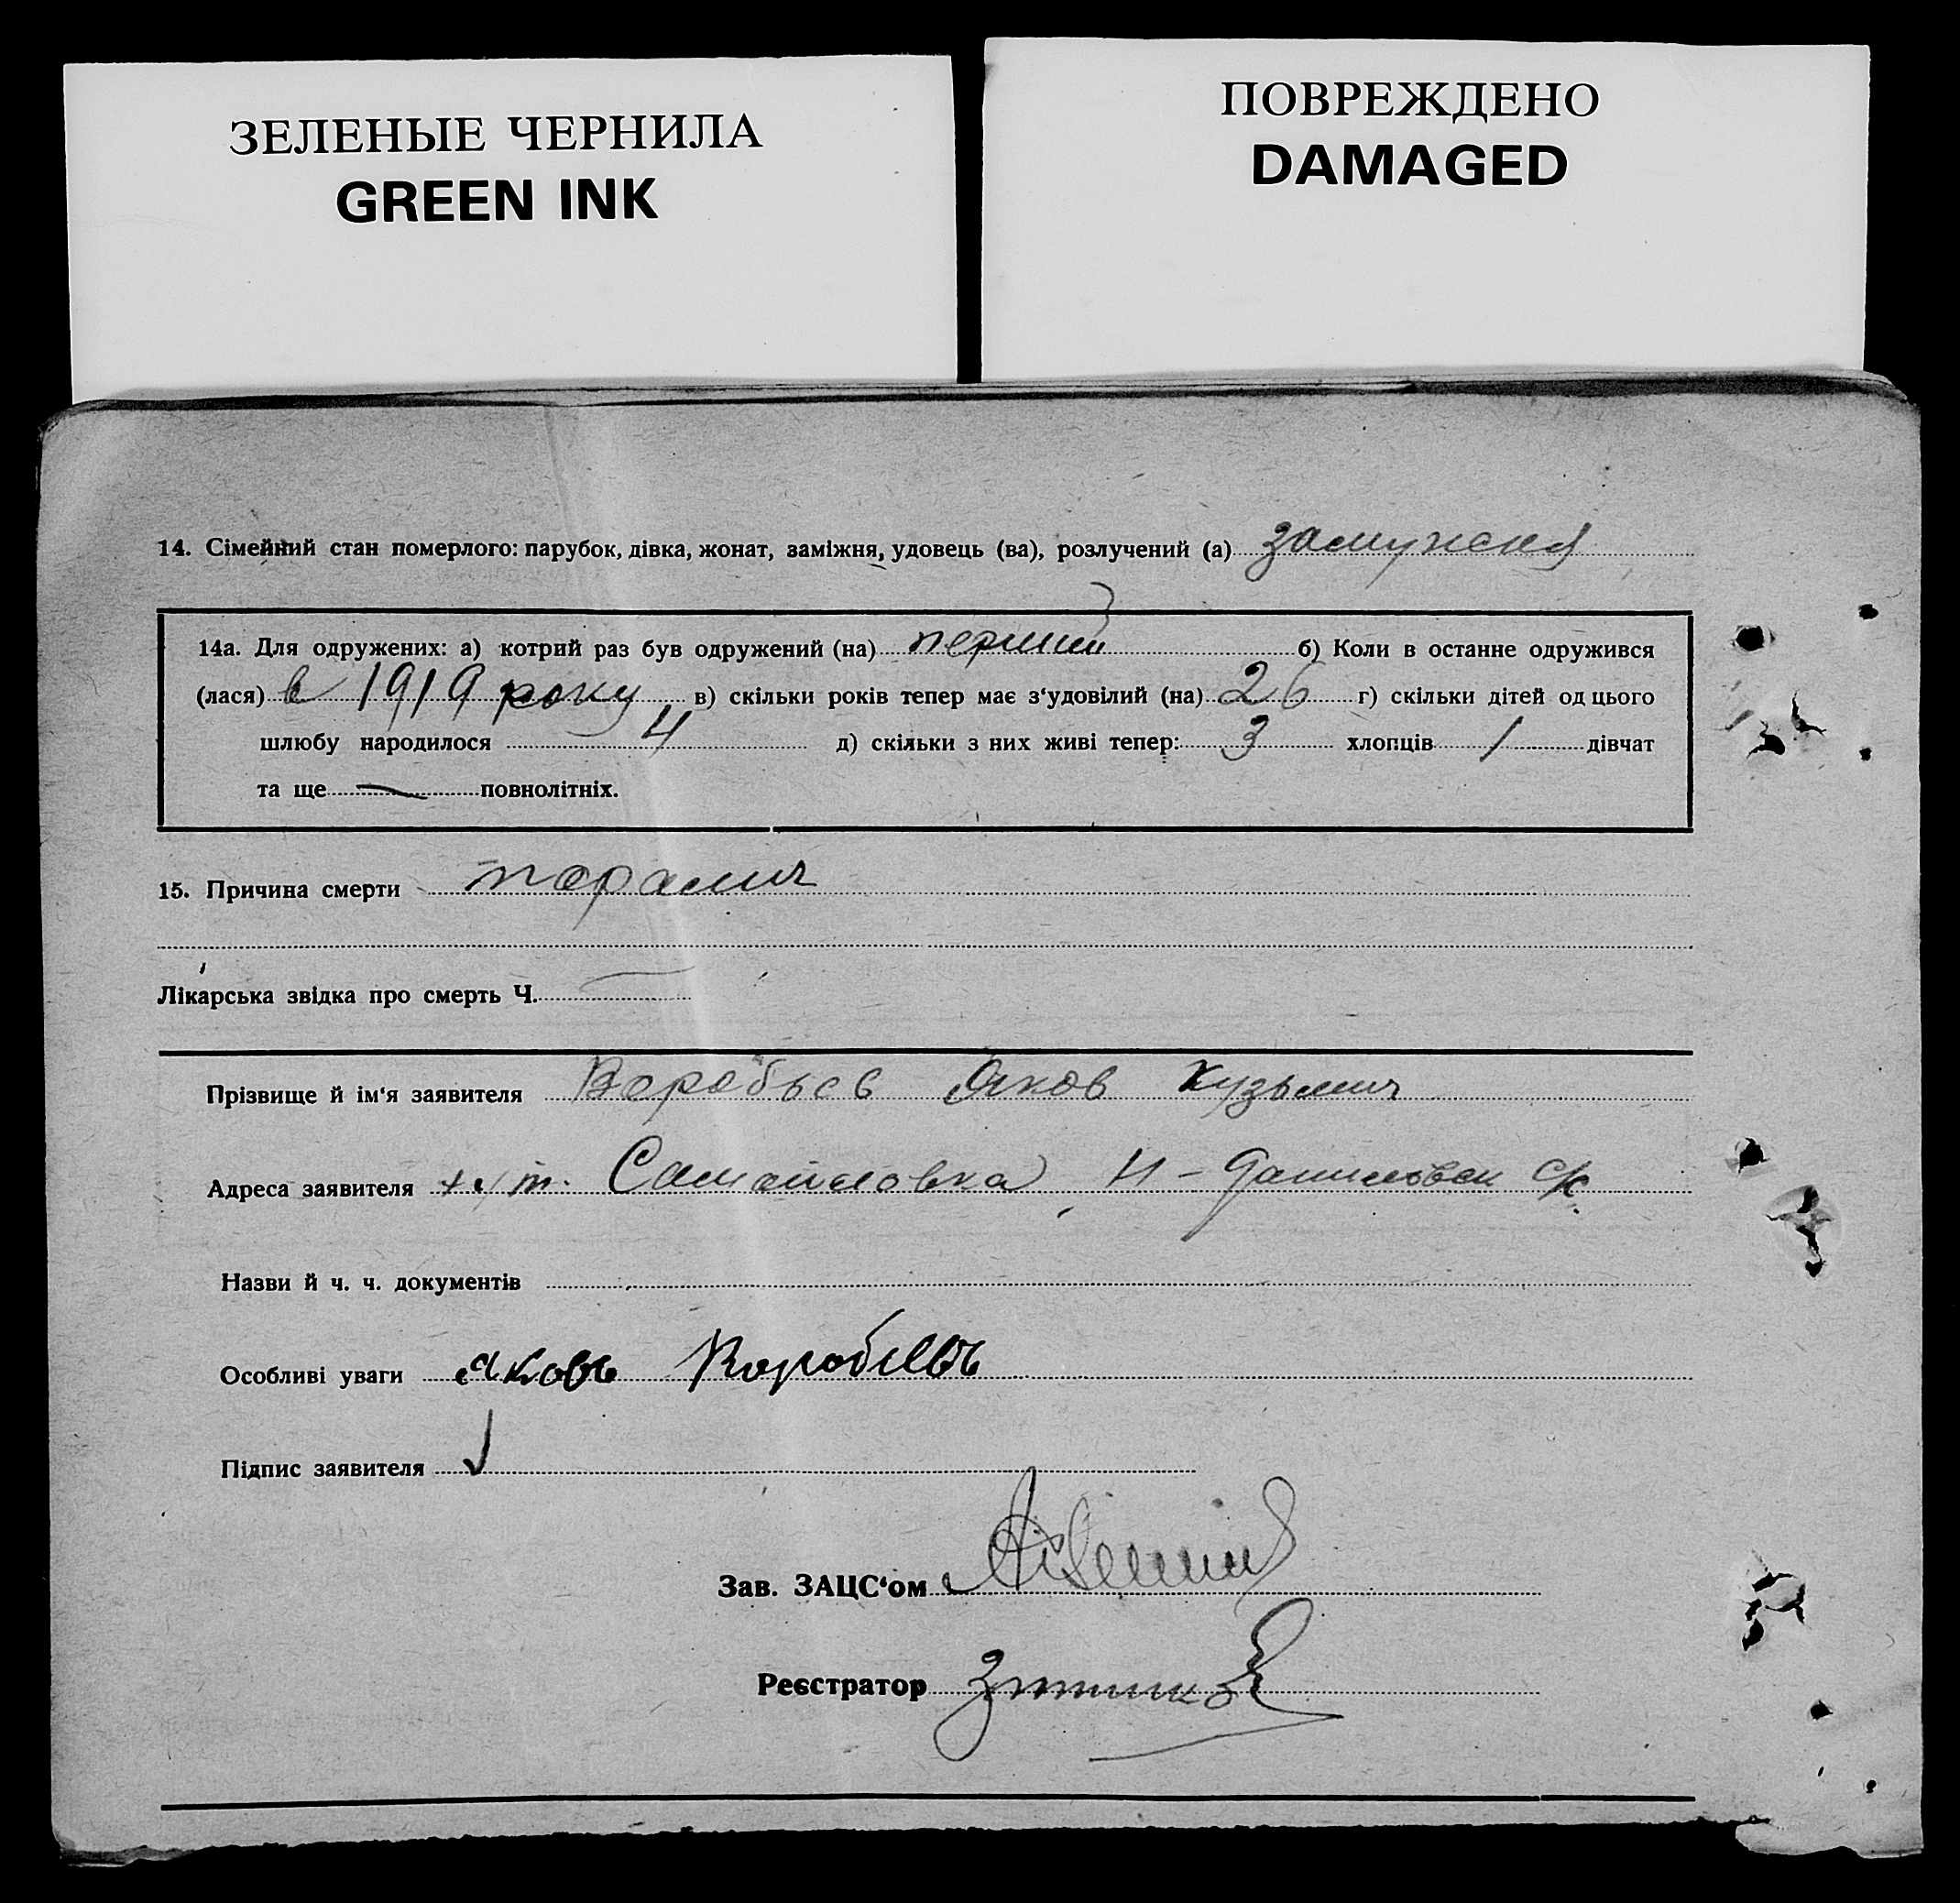 ЗЕЛЕНЫЕ ЧЕРНИЛА
GREEN INK
ПОВРЕЖДЕНО
DAMAGED
14. Сімейний стан померлого: парубок, дівка, жонат, заміжня, удовець (ва), розлучений (а) замужня
14а. Для одружених: а) котрий раз був одружений (на) перший б) Коли в останне одружився
(лася) в 1919 року в) скільки років тепер має з‘удовілий (на) 26 г) скільки дітей од цього
шлюбу народилося 4 д) скільки з них живі тепер: 3 хлопців 1 дівчат
та ще — повнолітніх.
15. Причина смерти паралич
Лікарська звідка про смерть Ч. —
Прізвище й ім‘я заявителя Воробьев Яков Кузьмич
Адреса заявителя хут. Самойловка Н-Даниловск с/р
Назви й ч. ч. документів
Особливі уваги Яковъ Воробьевъ
Підпис заявителя
Зав. ЗАЦС‘ом
Реєстратор